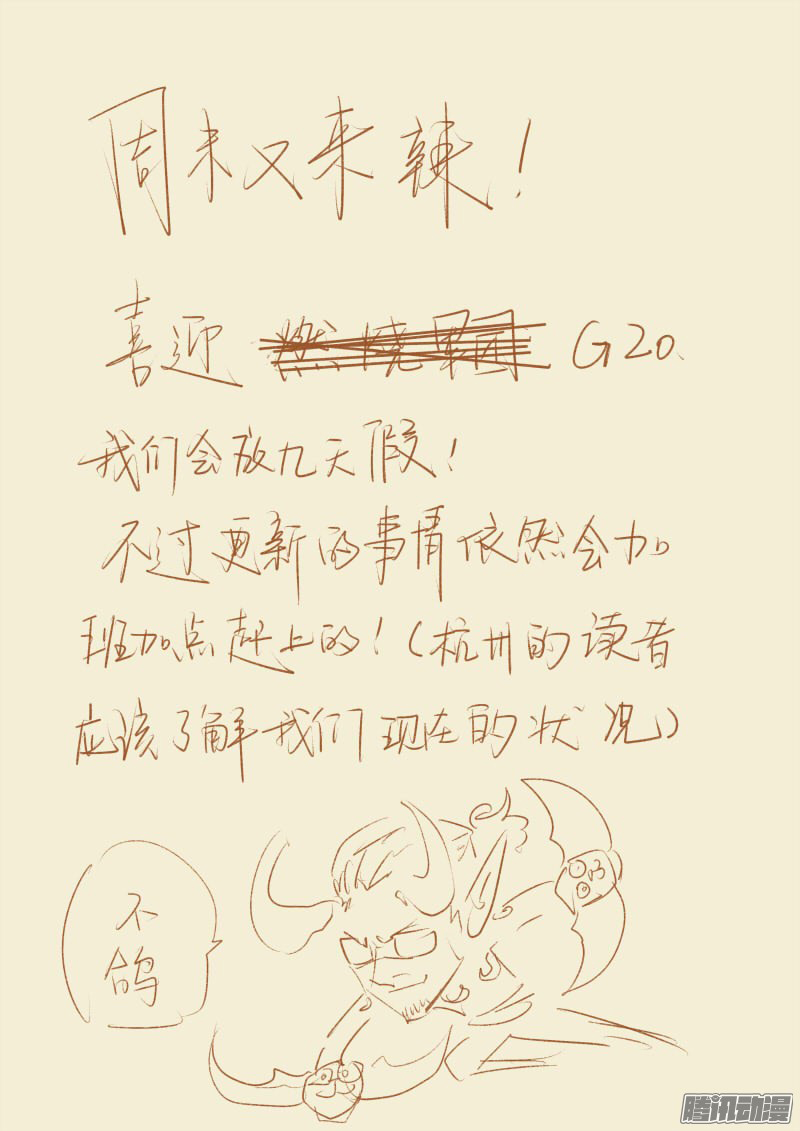 周末又来辣！
喜迎 燃烧军团 G20、
我们会放九天假！
不过更新的事情依然会加
班加点赶上的！（杭州的读者
应该了解我们现在的状况）
不
鸽
腾讯动漫